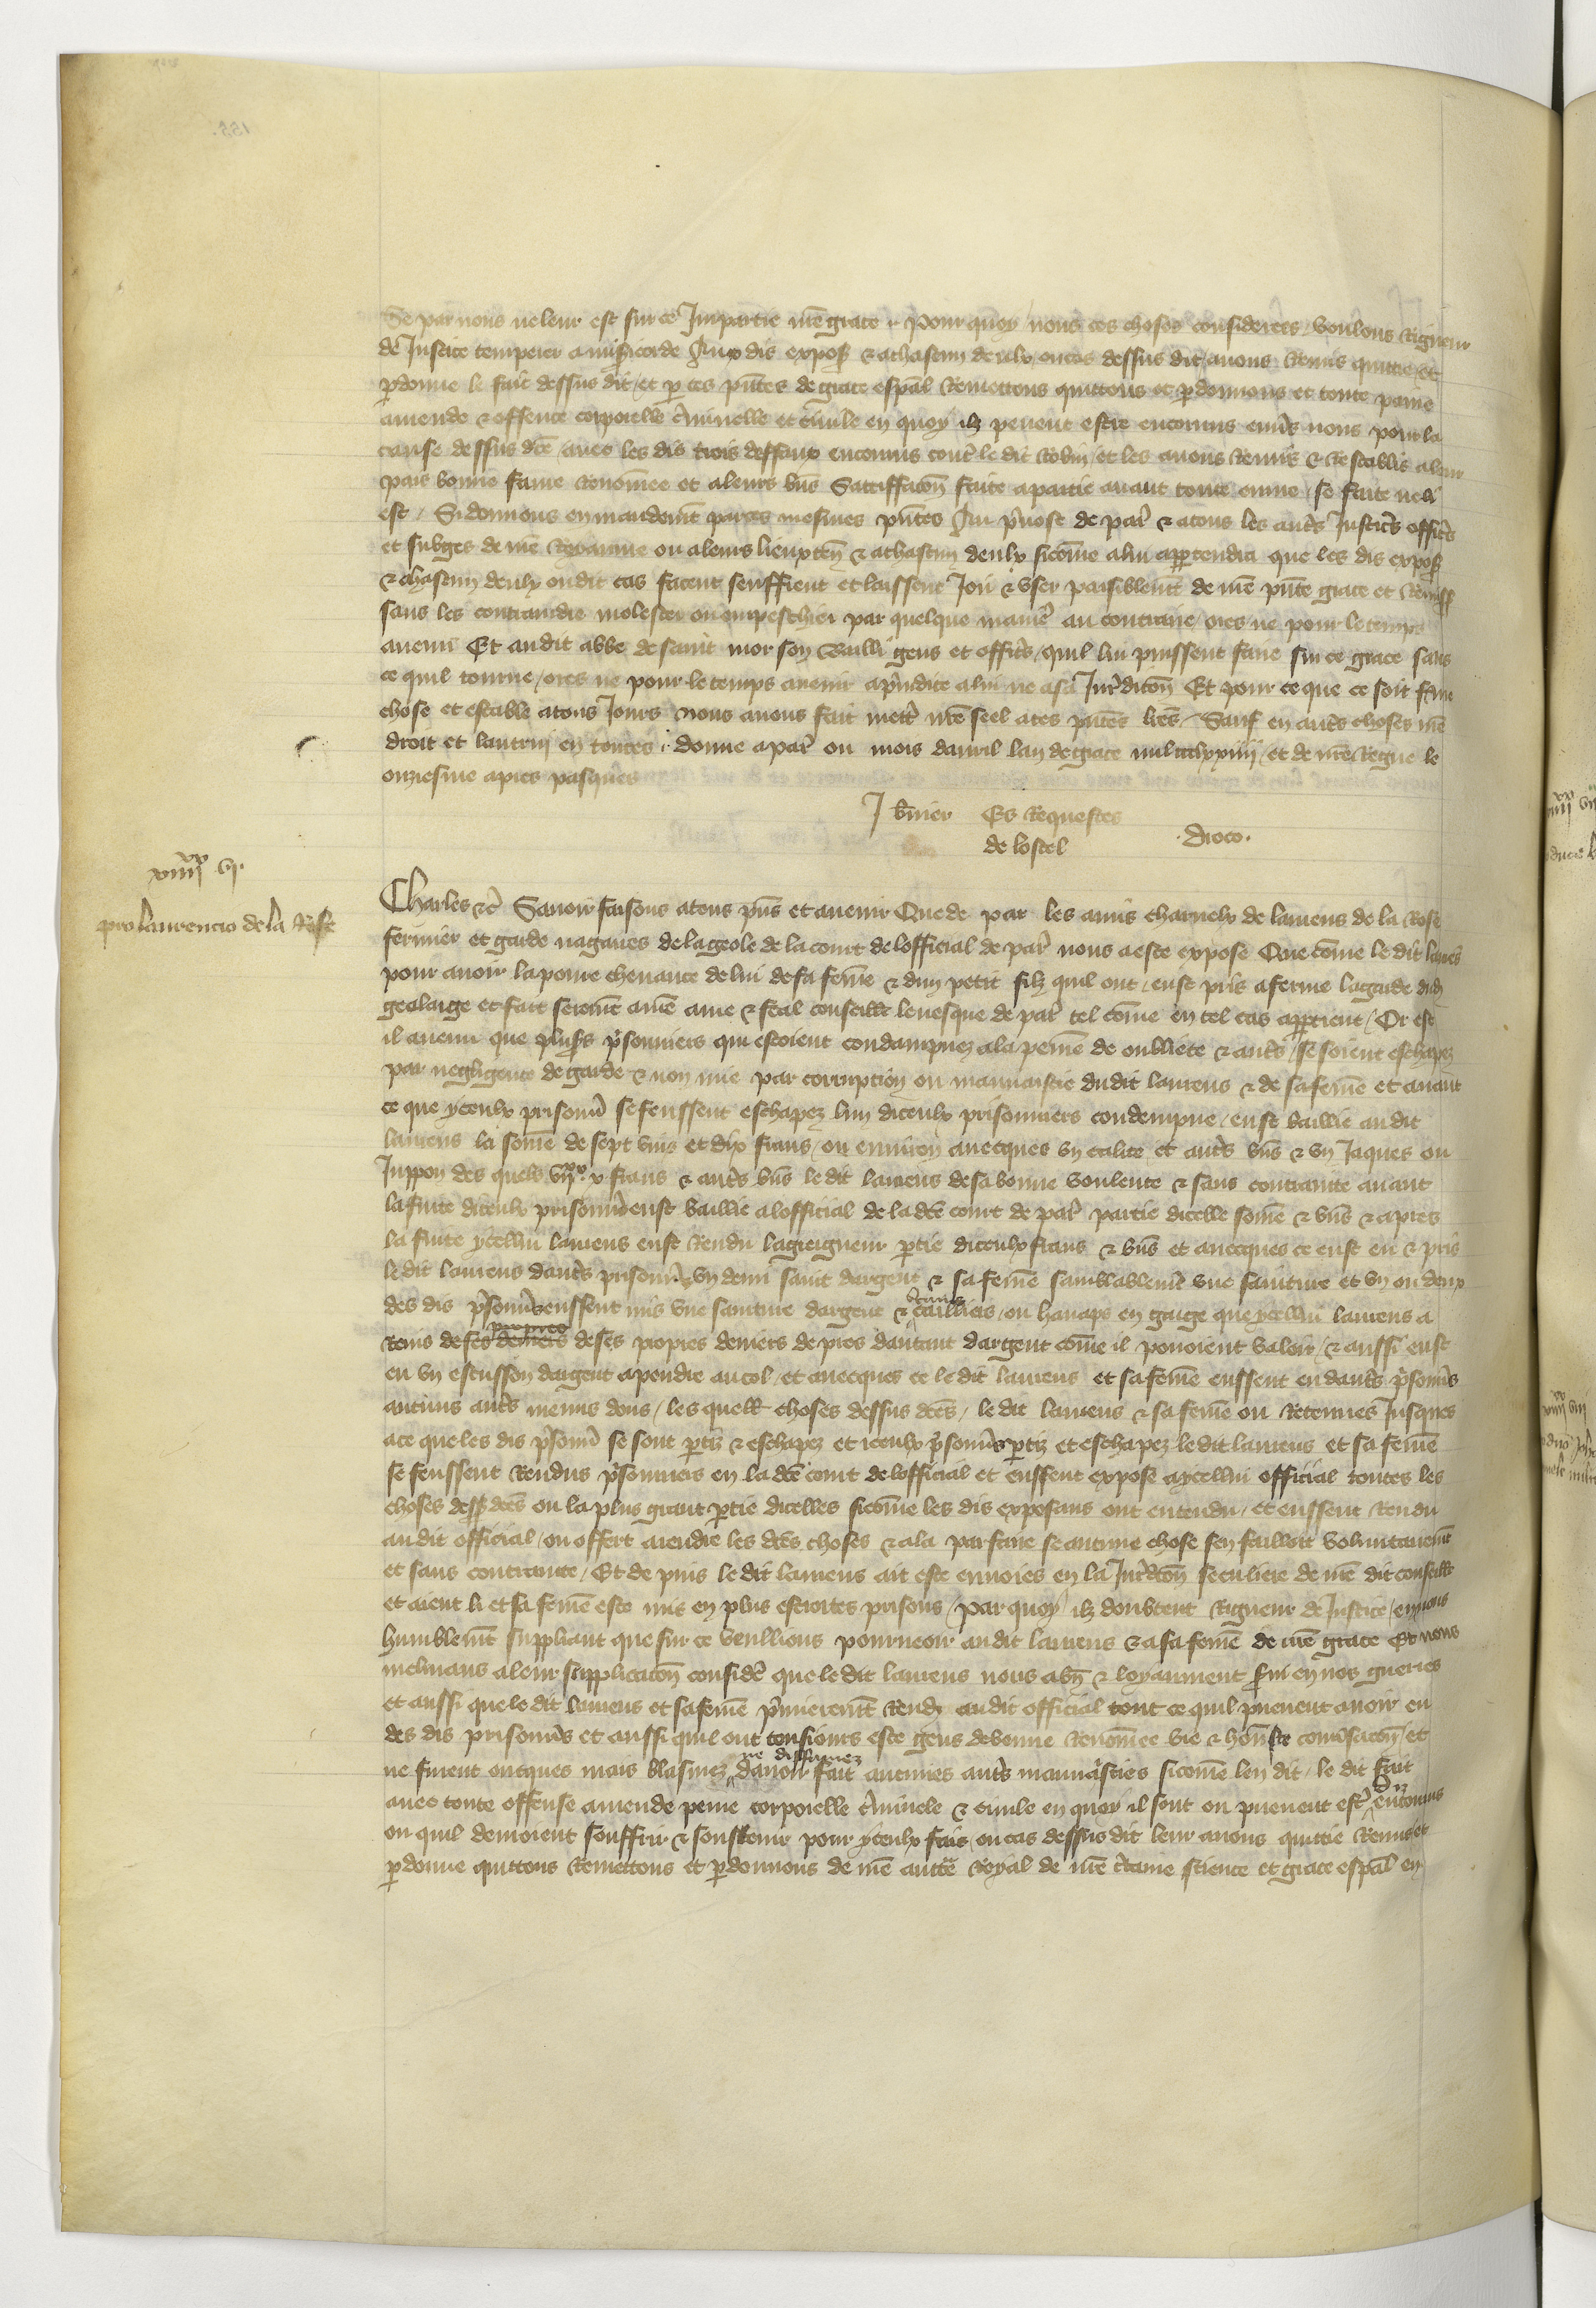 Se par nous ne leur est sur ce Impartie nre grace Pour quoy nous ces choses considerees voulons Rigueur
de Justice temperer a misericorde Aux dis expos & a chascun deulx ou cas dessus dit auons Remis quittie et
pdonne le fait dessus dit et p ces pntes de grace espal Remettons quittons et pdonnons et toute paine
amende & offence corporelle criminelle et ciuile en quoy ilz peuent estre encouruz enuers nous pour la
cause dessus dce auec les dis trois deffaux encouruz contr le dit Robin et les auons Remis & Restablis a leur
pais bonne fame Renommee et a leurs bns Satisfacon faite a partie auant toute euure se faite nest
est Si donnons en mandemt par ces mesmes pntes Au preuost de par & a tous les autrs Justicrs officrs
et subges de nre Royaume ou a leurs lieuxten & a chascun deulx sicome a lui appartendra que les dis expos
& chascun deulx ou dit cas facent seuffrent et laissent Joir & vser paisiblemt de nre pnte grace et Remiss
sans les contraindre molester ou empeschier par quelque manier au contraire ores ne pour le temps
auenir Et au dit abbe de saint mor son Bailli gens et officrs quil lui puissent faire sur ce grace sans
ce quil tourne ores ne pour le temps auenir apreiudice a lui ne a sa Jurdicon Et pour ce que ce soit ferme
chose et estable a tous Jours nous auons fait mettr nre seel a ces pntes lres Sauf en autrs choses nre
droit et lautruj en toutes donne a par ou mois dauril lan de grace mil ccclxxiiij et de nre Regne le
onziesme apres pasques
J brnier Es Requestes
de lostel ·Droco·
iiijxx vj
pro laurencio de la Rose
Charles &c Sauoir faisons a tous pns et auenir Que de par les amis charnelx de laurens de la Rose
fermier et garde nagaires de la geole de la court de lofficial de par nous a este expose Que come le dit laurs
pour auoir la poure cheuance de lui de sa feme & dun petit filz quil ont eust pris a ferme la garde dud
geolaige et fait seremt a nre ame & feal conseillr leuesque de par tel come en tel cas appartient Or est
il auenu que plusrs prsonniers qui estoient condampnez a la peine de oubliete & autrs se soient eschapez
par negligence de garde & non mie par corrupcion ou mauuaistie du dit laurens & de sa feme et auant
ce que yceulx prisonnrs se feussent eschapez lun diceulx prisonniers condempne eust baillie au dit
laurens la some de sept vins et dix frans ou enuiron auecques vn calice et autrs bns & vn Jaques ou
Juppon des quelx vijxx x frans & autrs bns le dit laurens de sa bonne voulente & sans contrainte auant
la fuite diceulx prisonnrs eust baillie a lofficial de la dce court de par partie dicelle some & bns & apres
la fuite ycellui laurens eust Rendu la greigneur ptie diceulx frans & bns et auecques ce eust eu & pris
le dit laurens dautrs prisonnrs vn demi saint dargent & sa feme samblablemt vne sainture et vn ou deux
des dis prsonnrs eussent mis vne sainture dargent & crtains cailliers ou hanaps en gaige que ycellui laurens a
Renis de ses propres deniers de ses propres deniers de pres dautant dargent come il pouoient valoir & aussi eust
eu vn escusson dargent a pendre au col et auecques ce le dit laurens et sa feme eussent eu dautrs prsonnrs
aucuns autrs menus dons les quelles choses dessus dces le dit laurens & sa feme ou Retenues Jusques
a ce que les dis prsonnrs se sont ptiz & eschapez et iceulx prsonnrs ptiz et eschapez le dit laurens et sa feme
se feussent Rendus prsonniers en la dce court de lofficial et eussent expose a ycellui official toutes les
choses dess dces ou la plus grant ptie dicelles sicome les dis exposans ont entendu et eussent Rendu
au dit official ou offert a rendre les dces choses & a la parfaire se aucune chose sen failloit voluntairemt
et sans contrainte Et de puis le dit laurens ait este enuoies en la Jurdicon seculiere de nre dit conseillr
et aient li et sa feme este mis en plus estroites prisons par quoy ilz doubtent Rigueur de Justice en nous
humblemt suppliant que sur ce veullions pourueoir au dit laurens & a sa feme de nre grace Et nous
inclinans a leur supplicacon consider que le dit laurens nous a bn & loyaument serui en noz guerres
et aussi que le dit laurens et sa feme prmieremt Rendi au dit official tout ce quil pueuent auoir eu
des dis prisonnrs et aussi quil ont tousiours este gens de bonne Renommee vie & honste conursacon et
ne furent oncques mais blasmez ne diffamez dauoir fait aucunes autrs mauuaisties sicome len dit le dit fait
auec toute offense amende peine corporelle criminele & ciuile en quoy il sont ou pueuent estr encouruz
ou quil deuroient souffrir & soustenir pour yceulx fais ou cas dessus dit leur auons quittie Remis et
pdonne quittons Remettons et pdonnons de nre auctte Royal de nre crtaine science et grace espal en